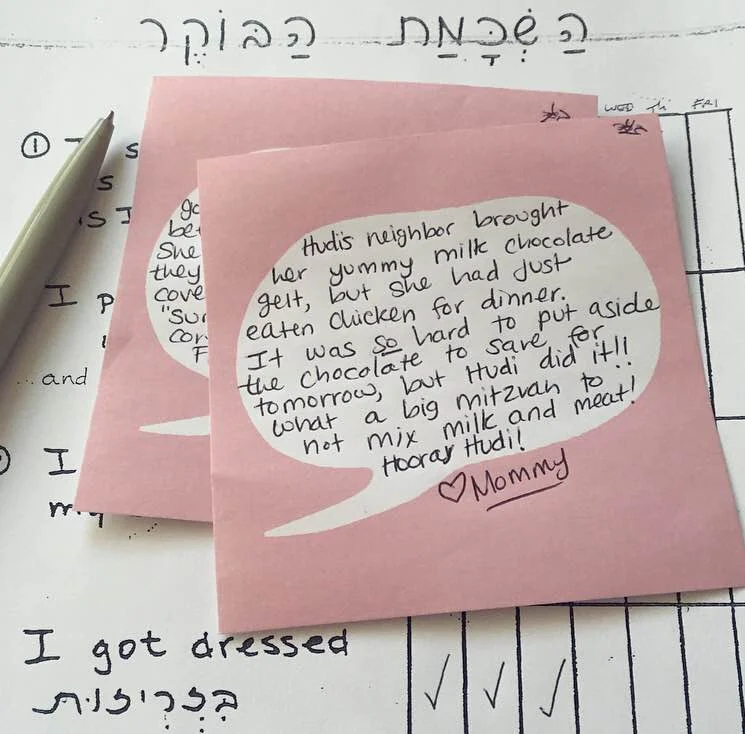 הַשְׁכָּמַת הַבּוֹקֶר
WED Th FRI
①
s
s
is I
go
be
She
they
cove
"Sur
cor
F
Hudi's neighbor brought
her yummy milk chocolate
gelt, but she had just
eaten chicken for dinner.
It was so hard to put aside
the chocolate to save for
tomorrow, but Hudi did it!!
What a big mitzvah to
not mix milk and meat!
Hooray Hudi!
♡ Mommy
I p
...and
I
my
I got dressed
בִּזְרִיזוּת
✓ ✓ ✓